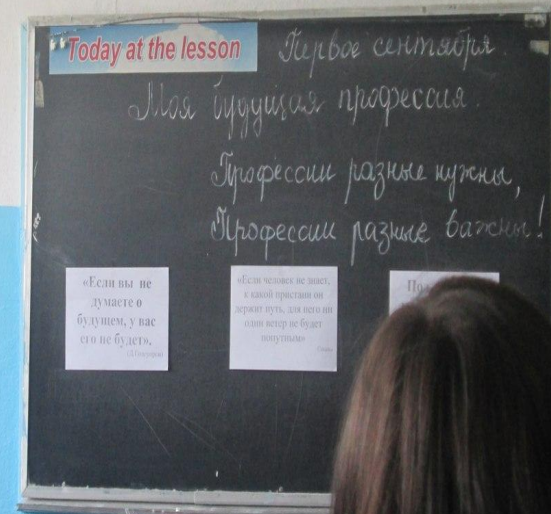 Today at the lesson
Первое сентября
Моя будущая профессия.
Профессии разные нужны,
Профессии разные важны!
«Если вы не
думаете о
будущем, у вас
его не будет».
(Д.Голсуорси)
«Если человек не знает,
к какой пристани он
держит путь, для него ни
один ветер не будет
попутным»